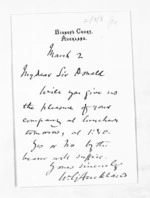 BISHOP'S COURT,
AUCKLAND.
March 2
My dear Sir Donald
Will you give us
the pleasure of your
company at luncheon
tomorrow, at 1.30.
Yes or No by the
bearer will suffice.
Yours sincerely
W. G. Auckland